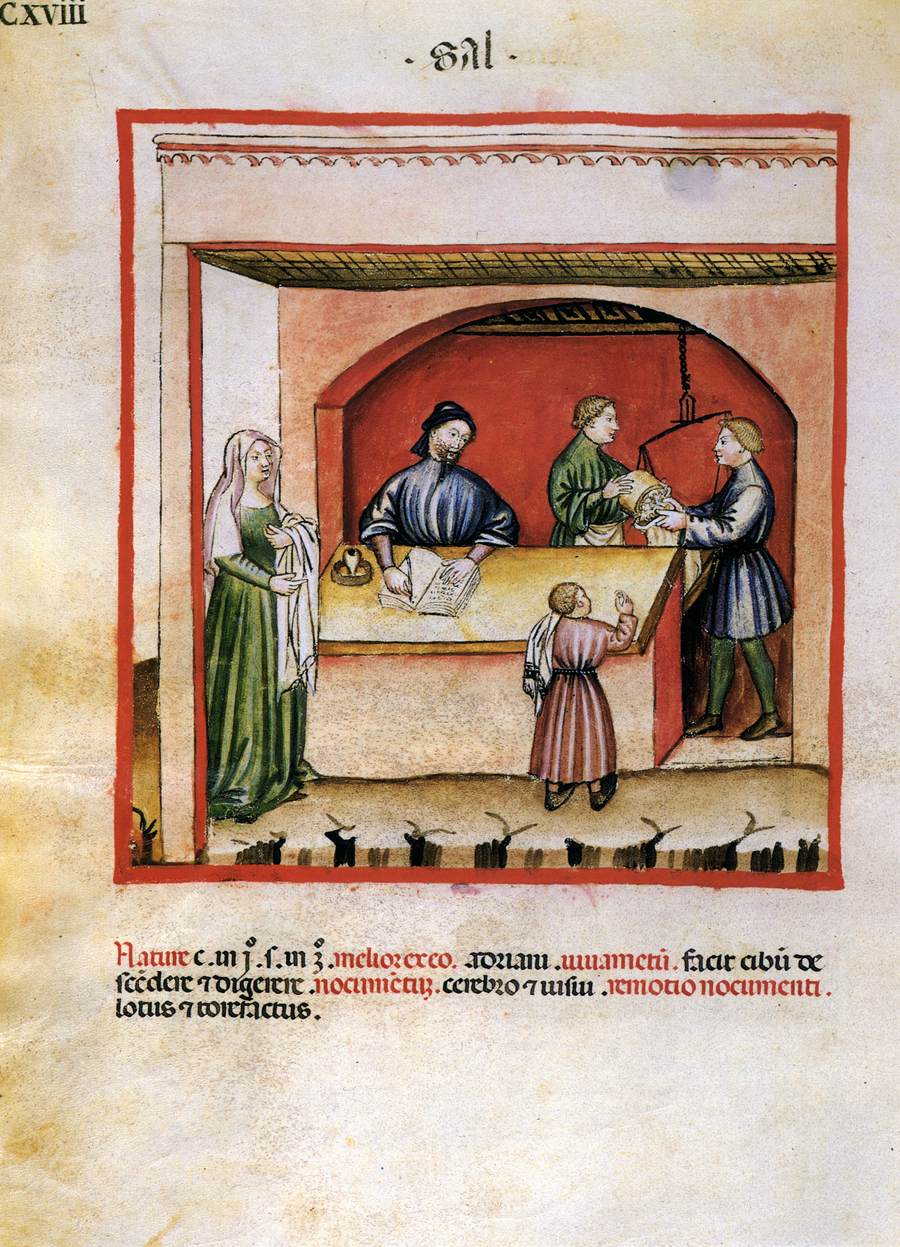 CXVIII
· SAl ·
Nature c. in j°. s. in ʒ°. melior ex eo. adriani. iuuamētū. facit cibū de
scēdere ⁊ digerere. nocumētū. cerebro ⁊ uisui. remotio nocumenti.
lotus ⁊ torefactus.